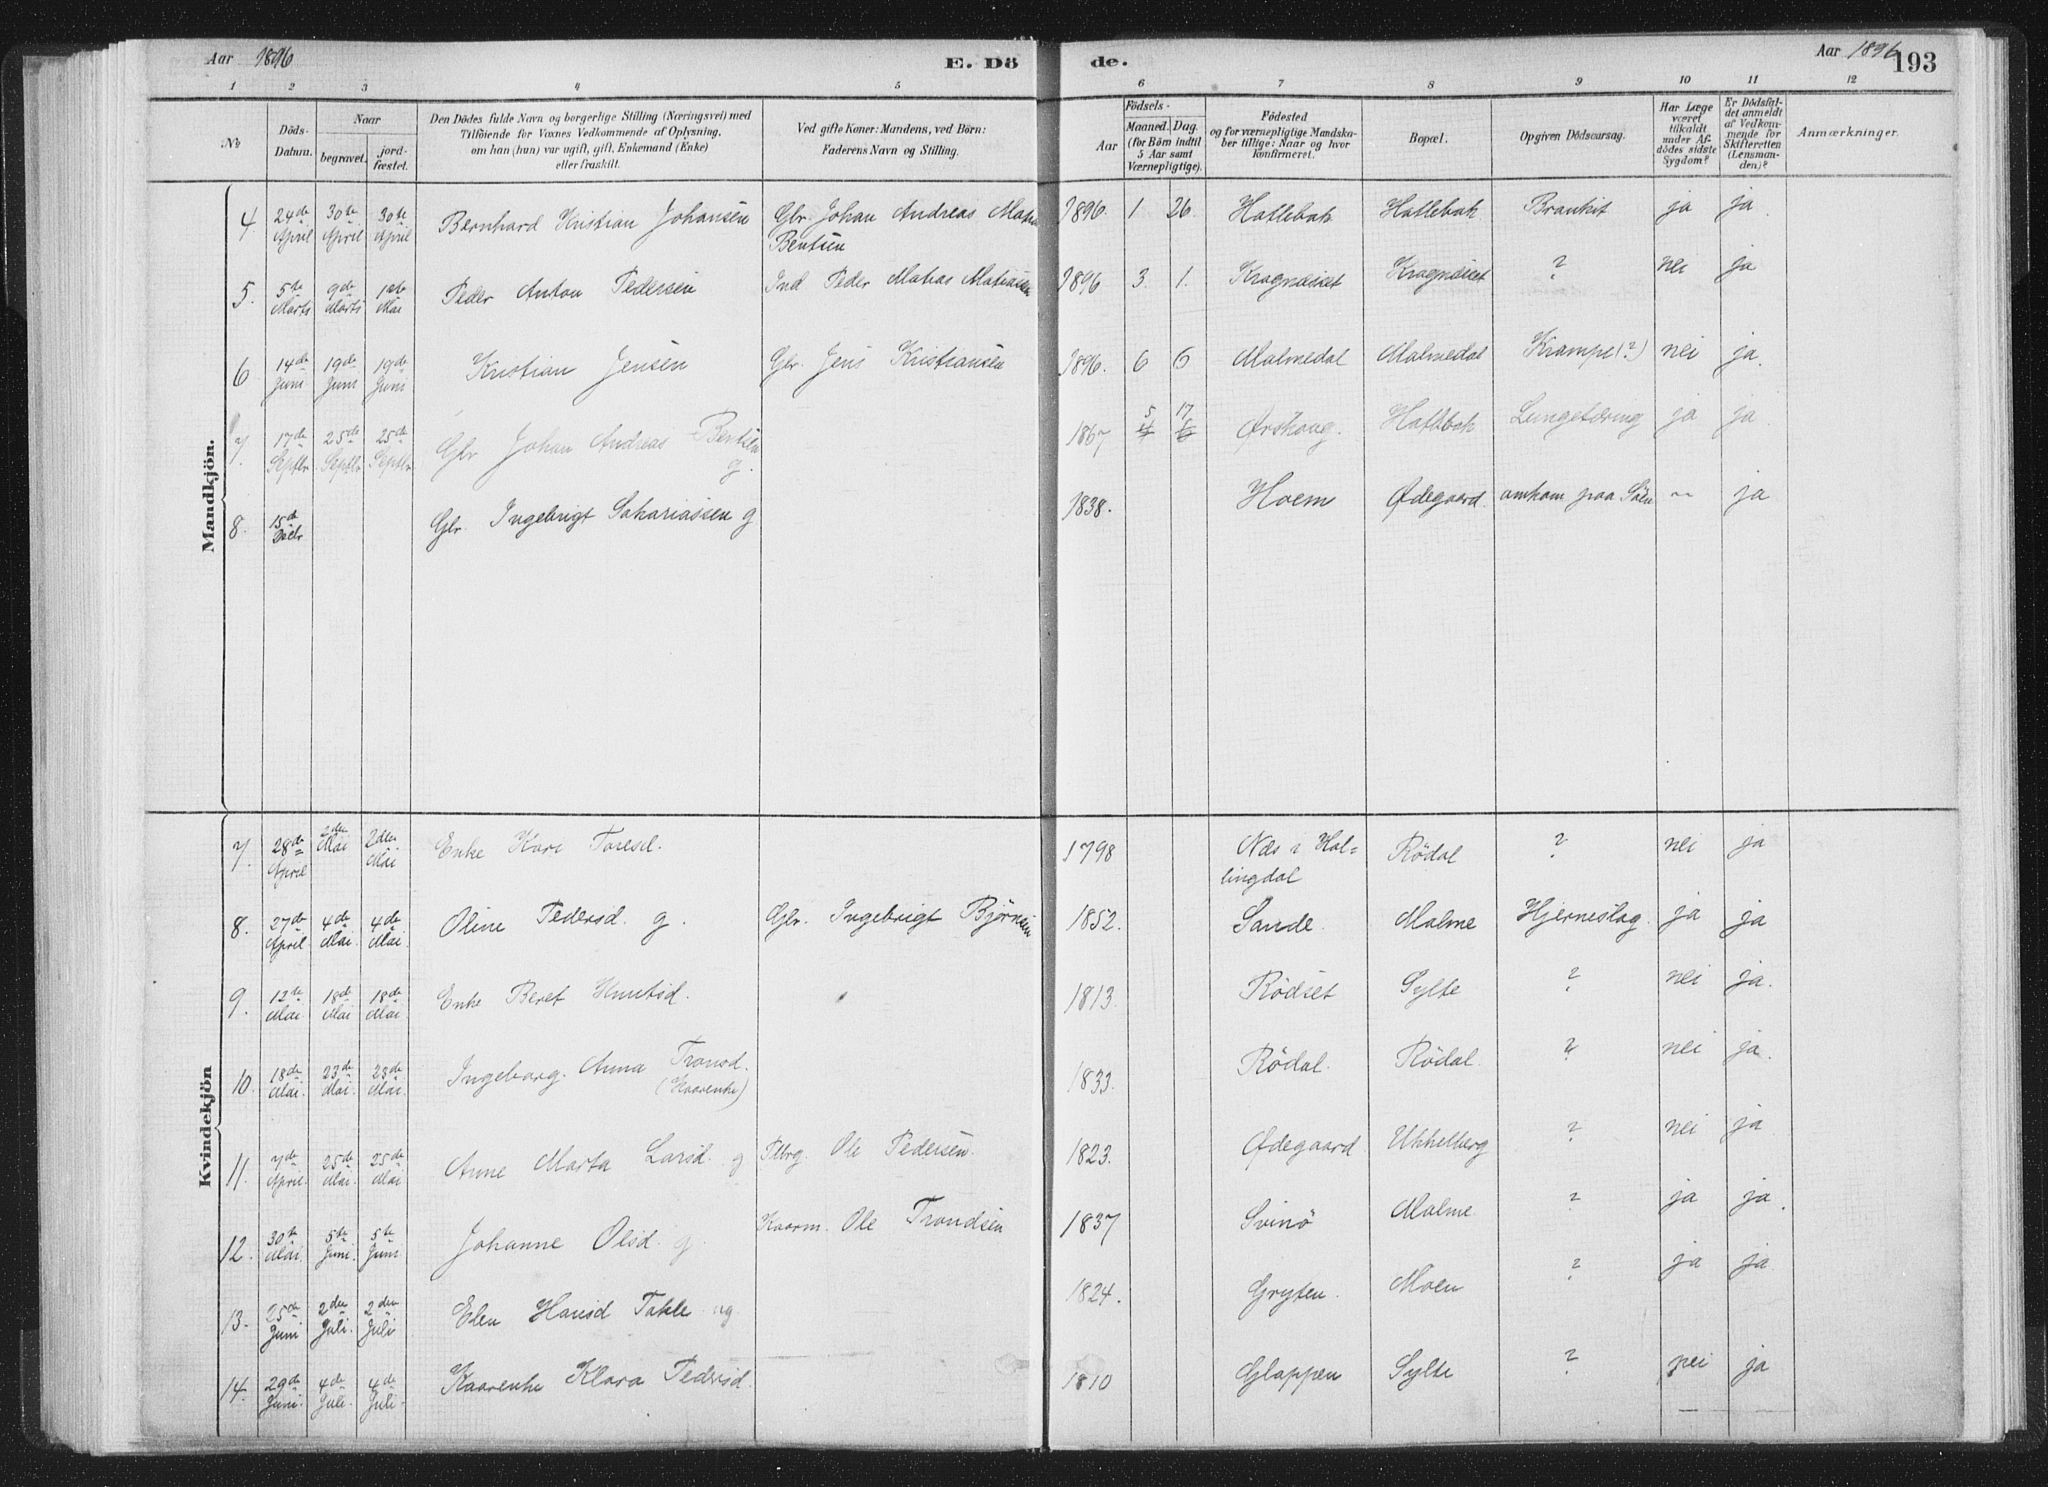 Aar 1896
E. Dö
de.
Aar 1896
193
1 2 3 4 5 6 7 8 9 10 11 12
No
Döds-Datum.
Naar
begravet.
jord-fæstet.
Den Dödes fulde Navn og borgerlige Stilling (Næringsvei) med
Tilföiende for Voxnes Vedkommende af Oplysning,
om han (hun) var ugift, gift, Enkemand (Enke)
eller fraskilt.
Ved gifte Koner: Mandens, ved Börn:
Faderens Navn og Stilling.
Födsels-
Aar
Maaned. Dag.
(for Börn indtil
5 Aar samt
Værnepligtige).
Födested
og for værnepligtige Mandska-
ber tillige: Naar og hvor
konfirmeret.
Bopæl.
Opgiven Dödsaarsag.
Har Læge
været
tilkaldt
under Af-
dödes sidste
Sygdom?
Er Dödsfal-
det anmeldt
af Vedkom-
mende for
Skifteretten
(Lensman-
den)?
Anmærkninger.
Mandkjön.
4 24de April 30te April 30te April Bernhard Kristian Johansen Gbr. Johan Andreas
Bentsen 1896. 1 26. Hatlebak Hatlebak Bronkit ja ja.
5. 5te Marts 9de Marts 1ste Mai Peder Anton Pedersen Ind Peder Matias Matiassen 1896 3. 1. Kragnæset Kragnæset ? nei ja
6 14de Juni 19de Juni 19de Juni Kristian Jensen Gbr. Jens Kristiansen 1896. 6 6 Malmedal Malmedal Krampe(?) nei ja.
7. 17de Septbr. 25de Septbr. 25de Septbr. Gbr Johan Andreas Bentsen g. 1867 5 17 Ørskoug. Hatlebak Lungetæring ja ja.
8. 15de Gbr. Ingebrigt Sakariassen g 1838. Hoem Ødegaard. omkom paa Söen — ja
Kvindekjön
7. 28de April 2den Mai 2den Mai Enke Kari Toresd. 1798 Næs i Hal=
lingdal Rödal ? nei ja
8. 27de April 4de Mai. 4de Mai. Oline Pedersd. g. Gbr. Ingebrigt Bjørnsen 1852. Sande. Malme Hjerneslag. ja ja
9. 12te Mai 18de Mai 18de Mai. Enke Beret Knutsd. 1813. Rödset Sylte ? nei ja.
10. 18de Mai. 23de Mai. 23de Mai. Ingeborg Anna Tronsd.
(Kaarenke) 1833. Rödal. Rödal ? nei ja.
11. 7de April. 25de Mai. 25de Mai Anne Marta Larsd. g Ole Pedersen. 1823. Ødegaard Ukkelberg ? nei ja
12. 30te Mai. 5te Juni. 5te Juni Johanne Olsd. g. Kaarm. Ole Trondsen 1837 Svinö Malme ? ja ja.
13. 25de Juni 2den Juli. 2den Juli Elen Hansd Takle ug. 1824. Gryten. Moen ? ja ja
14. 29de Juni. 4de Juli. 4de Juli. Kaarenke Klara Pedersd. 1810 Glappen Sylte ? nei ja